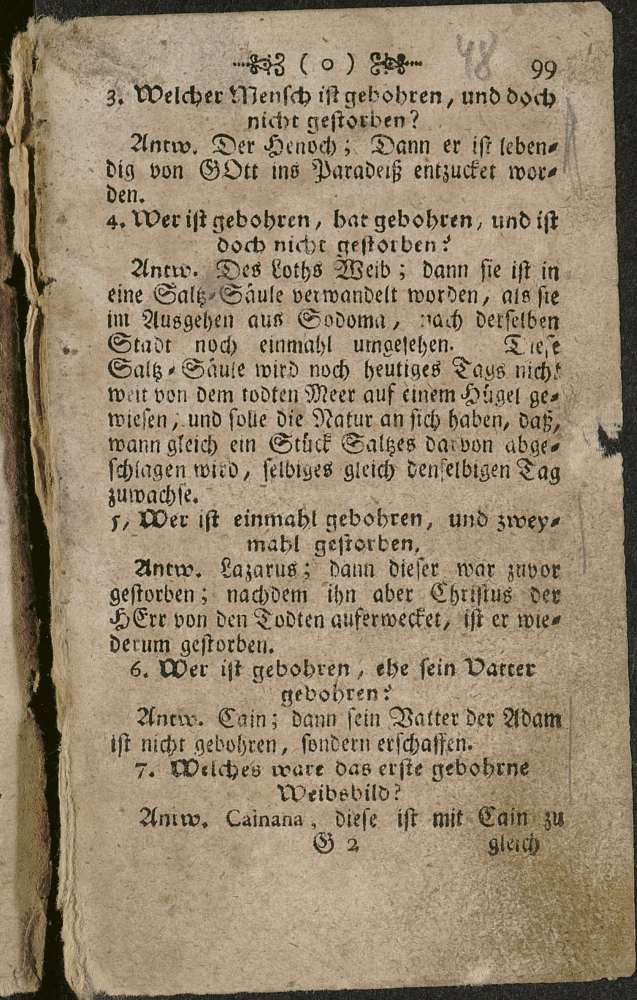 ( o ) 48 99
3. Welcher Mensch ist gebohren, und doch
nicht gestorben?
Antw. Der Henoch; Dann er ist leben-
dig von GOtt ins Paradeiß entzucket wor-
den.
4. Wer ist gebohren, hat gebohren, und ist
doch nicht gestorben?
Antw. Des Loths Weib; dann sie ist in
eine Saltz-Säule verwandelt worden, als sie
im Ausgehen aus Sodoma, nach derselben
Stadt noch einmahl umgesehen. Diese
Saltz-Säule wird noch heutiges Tags nicht
weit von dem todten Meer auf einem Hügel ge-
wiesen, und solle die Natur an sich haben, daß,
wann gleich ein Stück Saltzes davon abge-
schlagen wird, selbiges gleich denselbigen Tag
zuwachse.
5, Wer ist einmahl gebohren, und zwey-
mahl gestorben,
Antw. Lazarus; dann dieser war zuvor
gestorben; nachdem ihn aber Christus der
HErr von den Todten auferwecket, ist er wie-
derum gestorben.
6. Wer ist gebohren, ehe sein Vatter
gebohren?
Antw. Cain; dann sein Vatter der Adam
ist nicht gebohren, sondern erschaffen.
7. Welches ware das erste gebohrne
Weibsbild?
Antw. Cainana, diese ist mit Cain zu
G 2 gleich